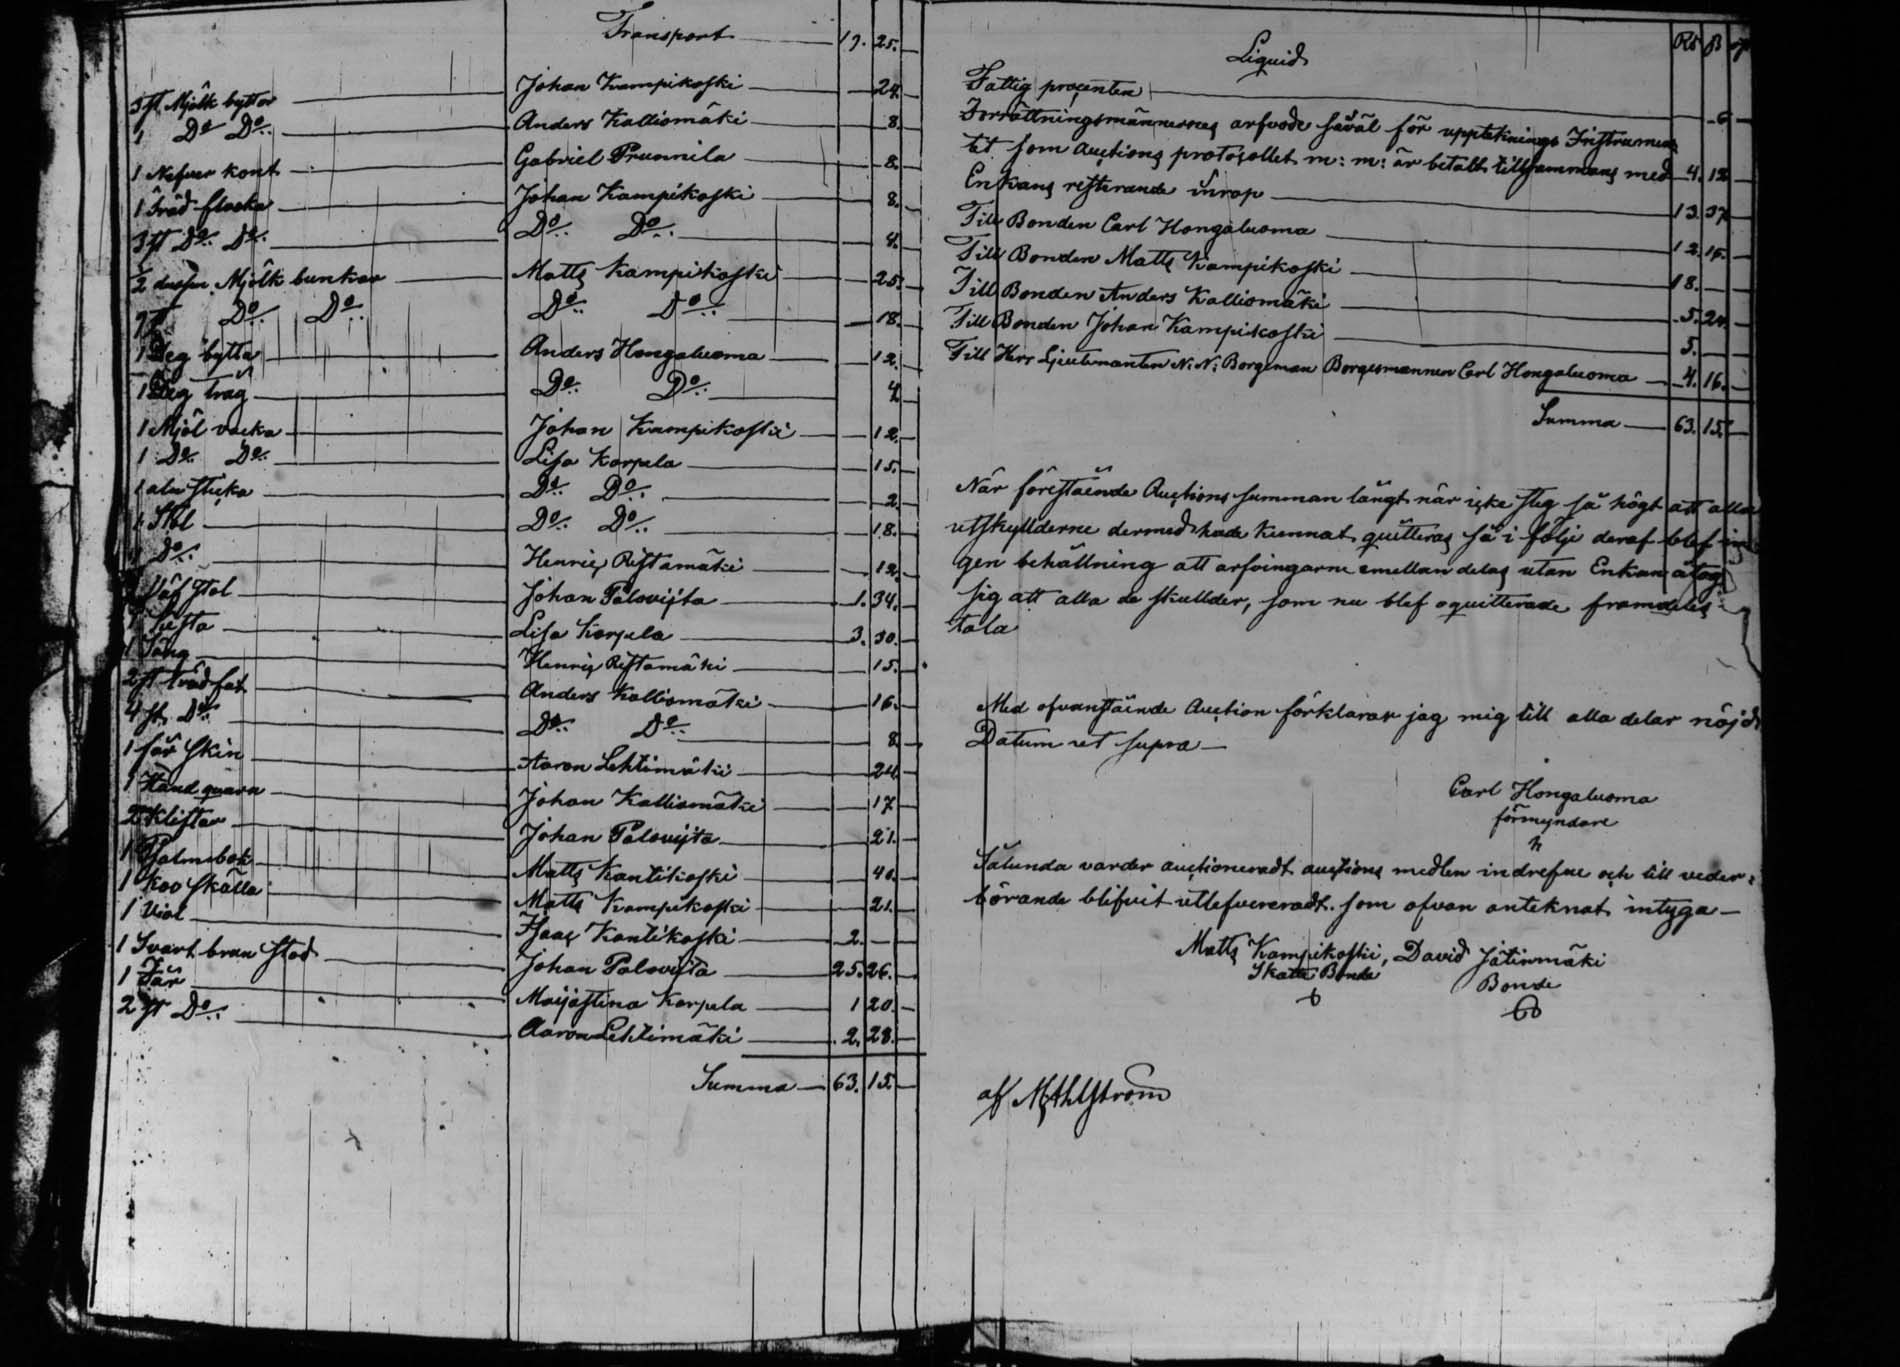 Transport 19. 25.
3 st Mjölk byttor Johan Kampikoski 24.
1 Do Do Anders Kalliomäki 8.
1 Nefver kont Gabriel Prunnila 8.
1 Tråd flocka Johan Kampikoski 8.
3 st Do Do Do Do 4.
½ dussin Mjölk bunkar Matts Kampikoski 25.
Do Do Do Do 18.
1 Deg bytta Anders Hongaluoma 12.
1 Deg tråg Do Do 4
1 Mjöl vacka Johan Kampikoski 12.
1 Do Do Lisa Korpela 15.
1 aln sticka Do Do 2
1 Stol Do Do 18.
1 Do Henric Ristamäki 12.
1 Väf stol Johan Palovista 1. 34.
1 Lisa Korpela 3. 30.
1 Säng Henric Ristamäki 15.
2 st träd fat Anders Kalliomäki 16.
4 st Do Do Do 8.
1 får skin Aaron Lehtimäki 24
1 Hand quarn Johan Kalliomäki 17
2 Klistar Johan Palovista 21.
1 Psalmebok Matts Kantikoski 40.
1 Koo skälla Matts Kampikoski 21.
1 Viol Isaac Kantikoski 2.
1 Svart brun stod Johan Palovista 25. 26.
1 Får Maijastina Korpela 1 20.
2 st Do Aaron Lehtimäki 2. 28.
Summa 63. 15.
Liquid Rd ß rp
Fattig procenten 6
Förrättningsmännernes arfvode såväl för upptecknings Instrumen
tet som Auctions protocollet m: m: är betalt tillsammans med 4. 12
Enkans resterande inrop 13. 37
Till Bonden Carl Hongaluoma 12. 15.
Till Bonden Matts Kampikoski 18.
Till Bonden Anders Kalliomäki 5. 24.
Till Bonden Johan Kampikoski 5.
Till Herr Lieutenanten N: N: Borgeman Borgesmannen Carl Hongaluoma 4. 16.
Summa 63. 15.
När förestående Auctions summan långt när icke steg så högt att alla
utskyllderne dermed hade kunnat quitteras så i följe deraf blef in
gen behållning att arfvingarne emellan delas utan Enkan åtog
sig att alla de skullder, som nu blef oquitterade framdeles
tala
Med ofvanstående Auction förklarar jag mig till alla delar nöjd
Datum ut supra
Carl Hongaluoma
förmyndare
Sålunda varder auctioneradt auctions medlen indrefne och till veder:
börande blifvit utlefvereradt som ofvan anteknat intyga
Matts Kampikoski, David Jätinmäki
Skatte Bonde Bonde
af M Ahlström